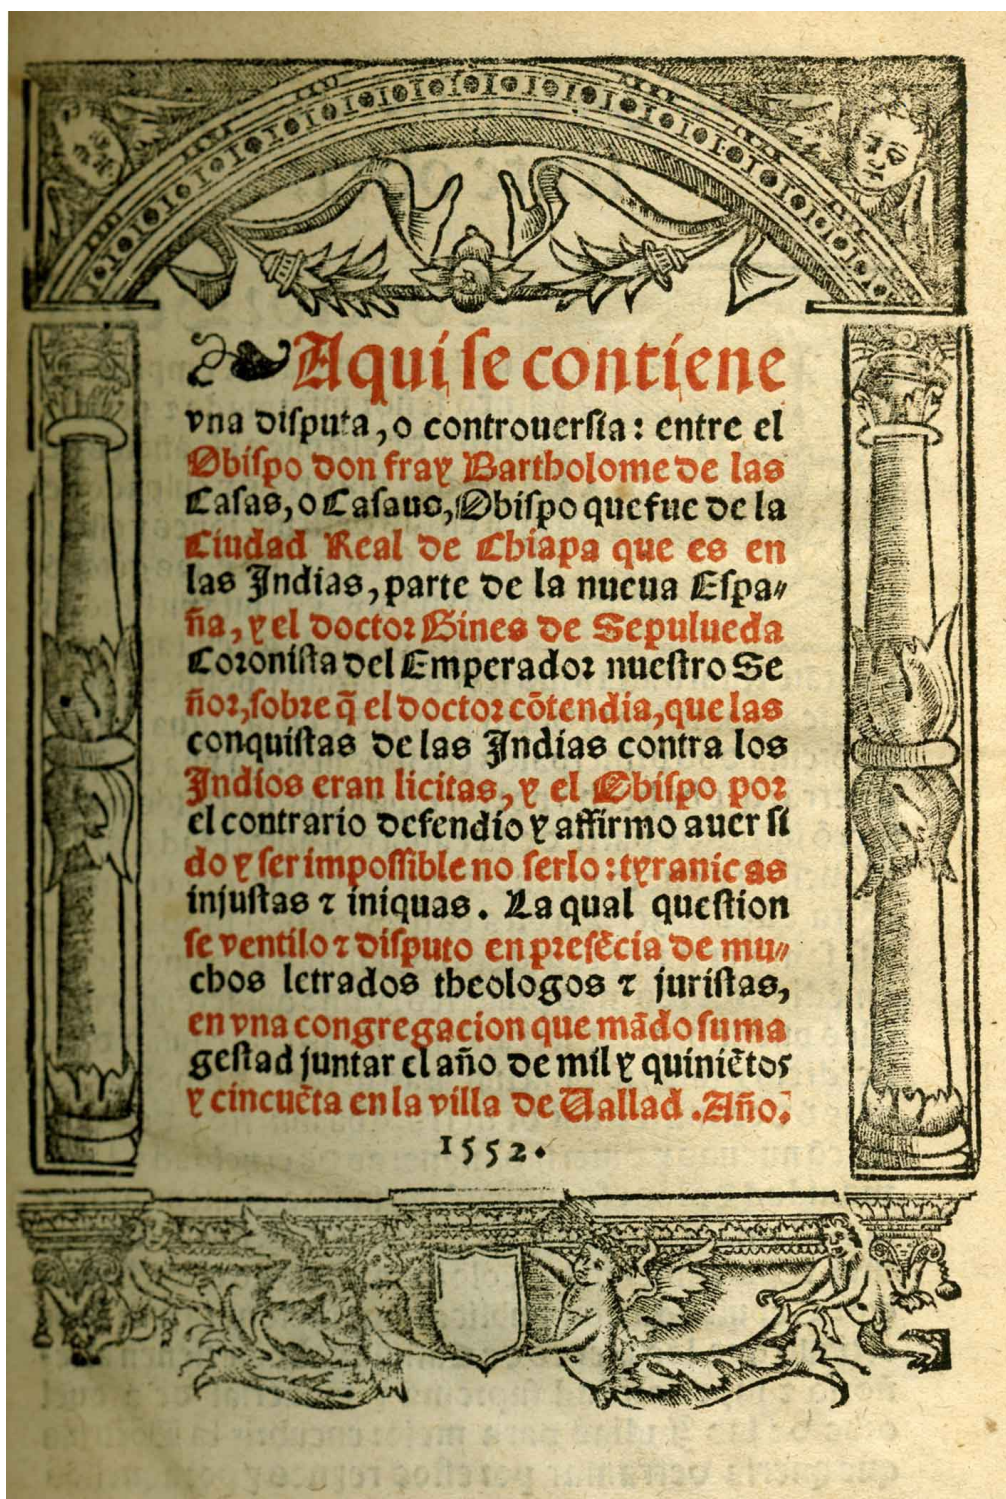 Aqui se contiene
vna disputa, o controuersia: entre el
Obispo don fray Bartholome de las
Casas, o Casaus, Obispo que fue de la
Ciudad Real de Chiapa que es en
las Indias, parte de la nueua Espa⸗
ña, y el doctor Gines de Sepulueda
Coronista del Emperador nuestro Se
ñor, sobre q̃ el doctor cõtendia, que las
conquistas de las Indias contra los
Indios eran licitas, y el Obispo por
el contrario defendio y affirmo auer si
do y ser impossible no serlo: tyranicas
injustas ⁊ iniquas. La qual question
se ventilo ⁊ disputo en presẽcia de mu⸗
chos letrados theologos ⁊ juristas,
en vna congregacion que mãdo su ma
gestad juntar el año de mil y quiniẽtos
y cincuẽta en la villa de Vallad. Año.
1552.